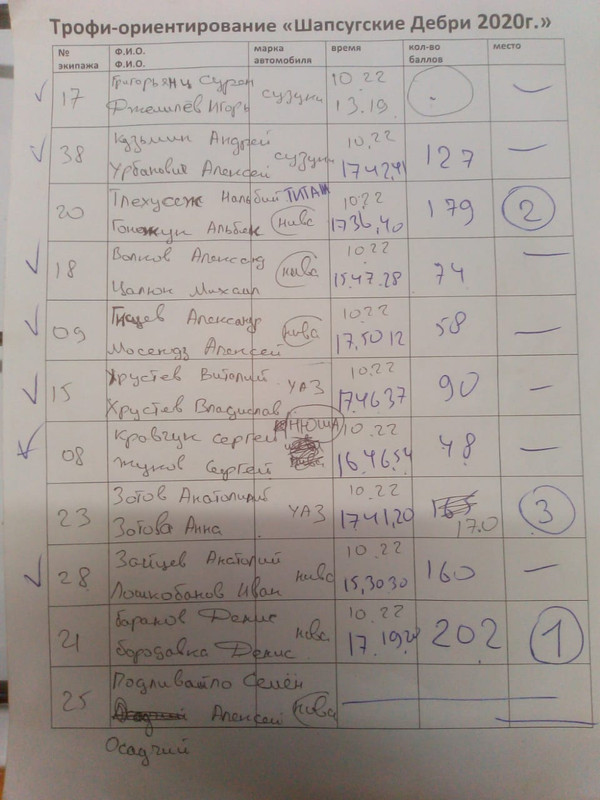 Трофи-ориентирование «Шапсугские Дебри 2020г.»
№ экипажа Ф.И.О. Ф.И.О. марка автомобиля время кол-во баллов место
17 Григорьянц Сурен сузуки 10.22 —
Джемилёв Игорь 13.19
38 Кузьмин Андрей сузуки 10.22 127 —
Урбанович Алексей 17 42,41
20 Тлехусеж Нальбий ТИТАН 10.22 179 2
Альбек нива 17 36,40
18 Волков Александр нива 10.22 74 —
Цалюк Михаил 15.47.28
09 Александр нива 10.22 58 —
Мосендз Алексей 17,50 12
15 Хрустев Виталий УАЗ 10.22 90 —
Хрустев Владислав 17 46 37
08 Кравчук Сергей НЮША 10.22 48 —
Жуков Сергей 16,46,54
23 Зотов Анатолий УАЗ 10.22 3
Зотова Анна 17 41,20 170
28 Зайцев Анатолий нива 10.22 160 —
Лошкобанов Иван 15,30 30
21 баранов Денис нива 10.22 202 1
бородавка Денис 17.19
25 Подливайло Семён нива —
Алексей
Осадчий